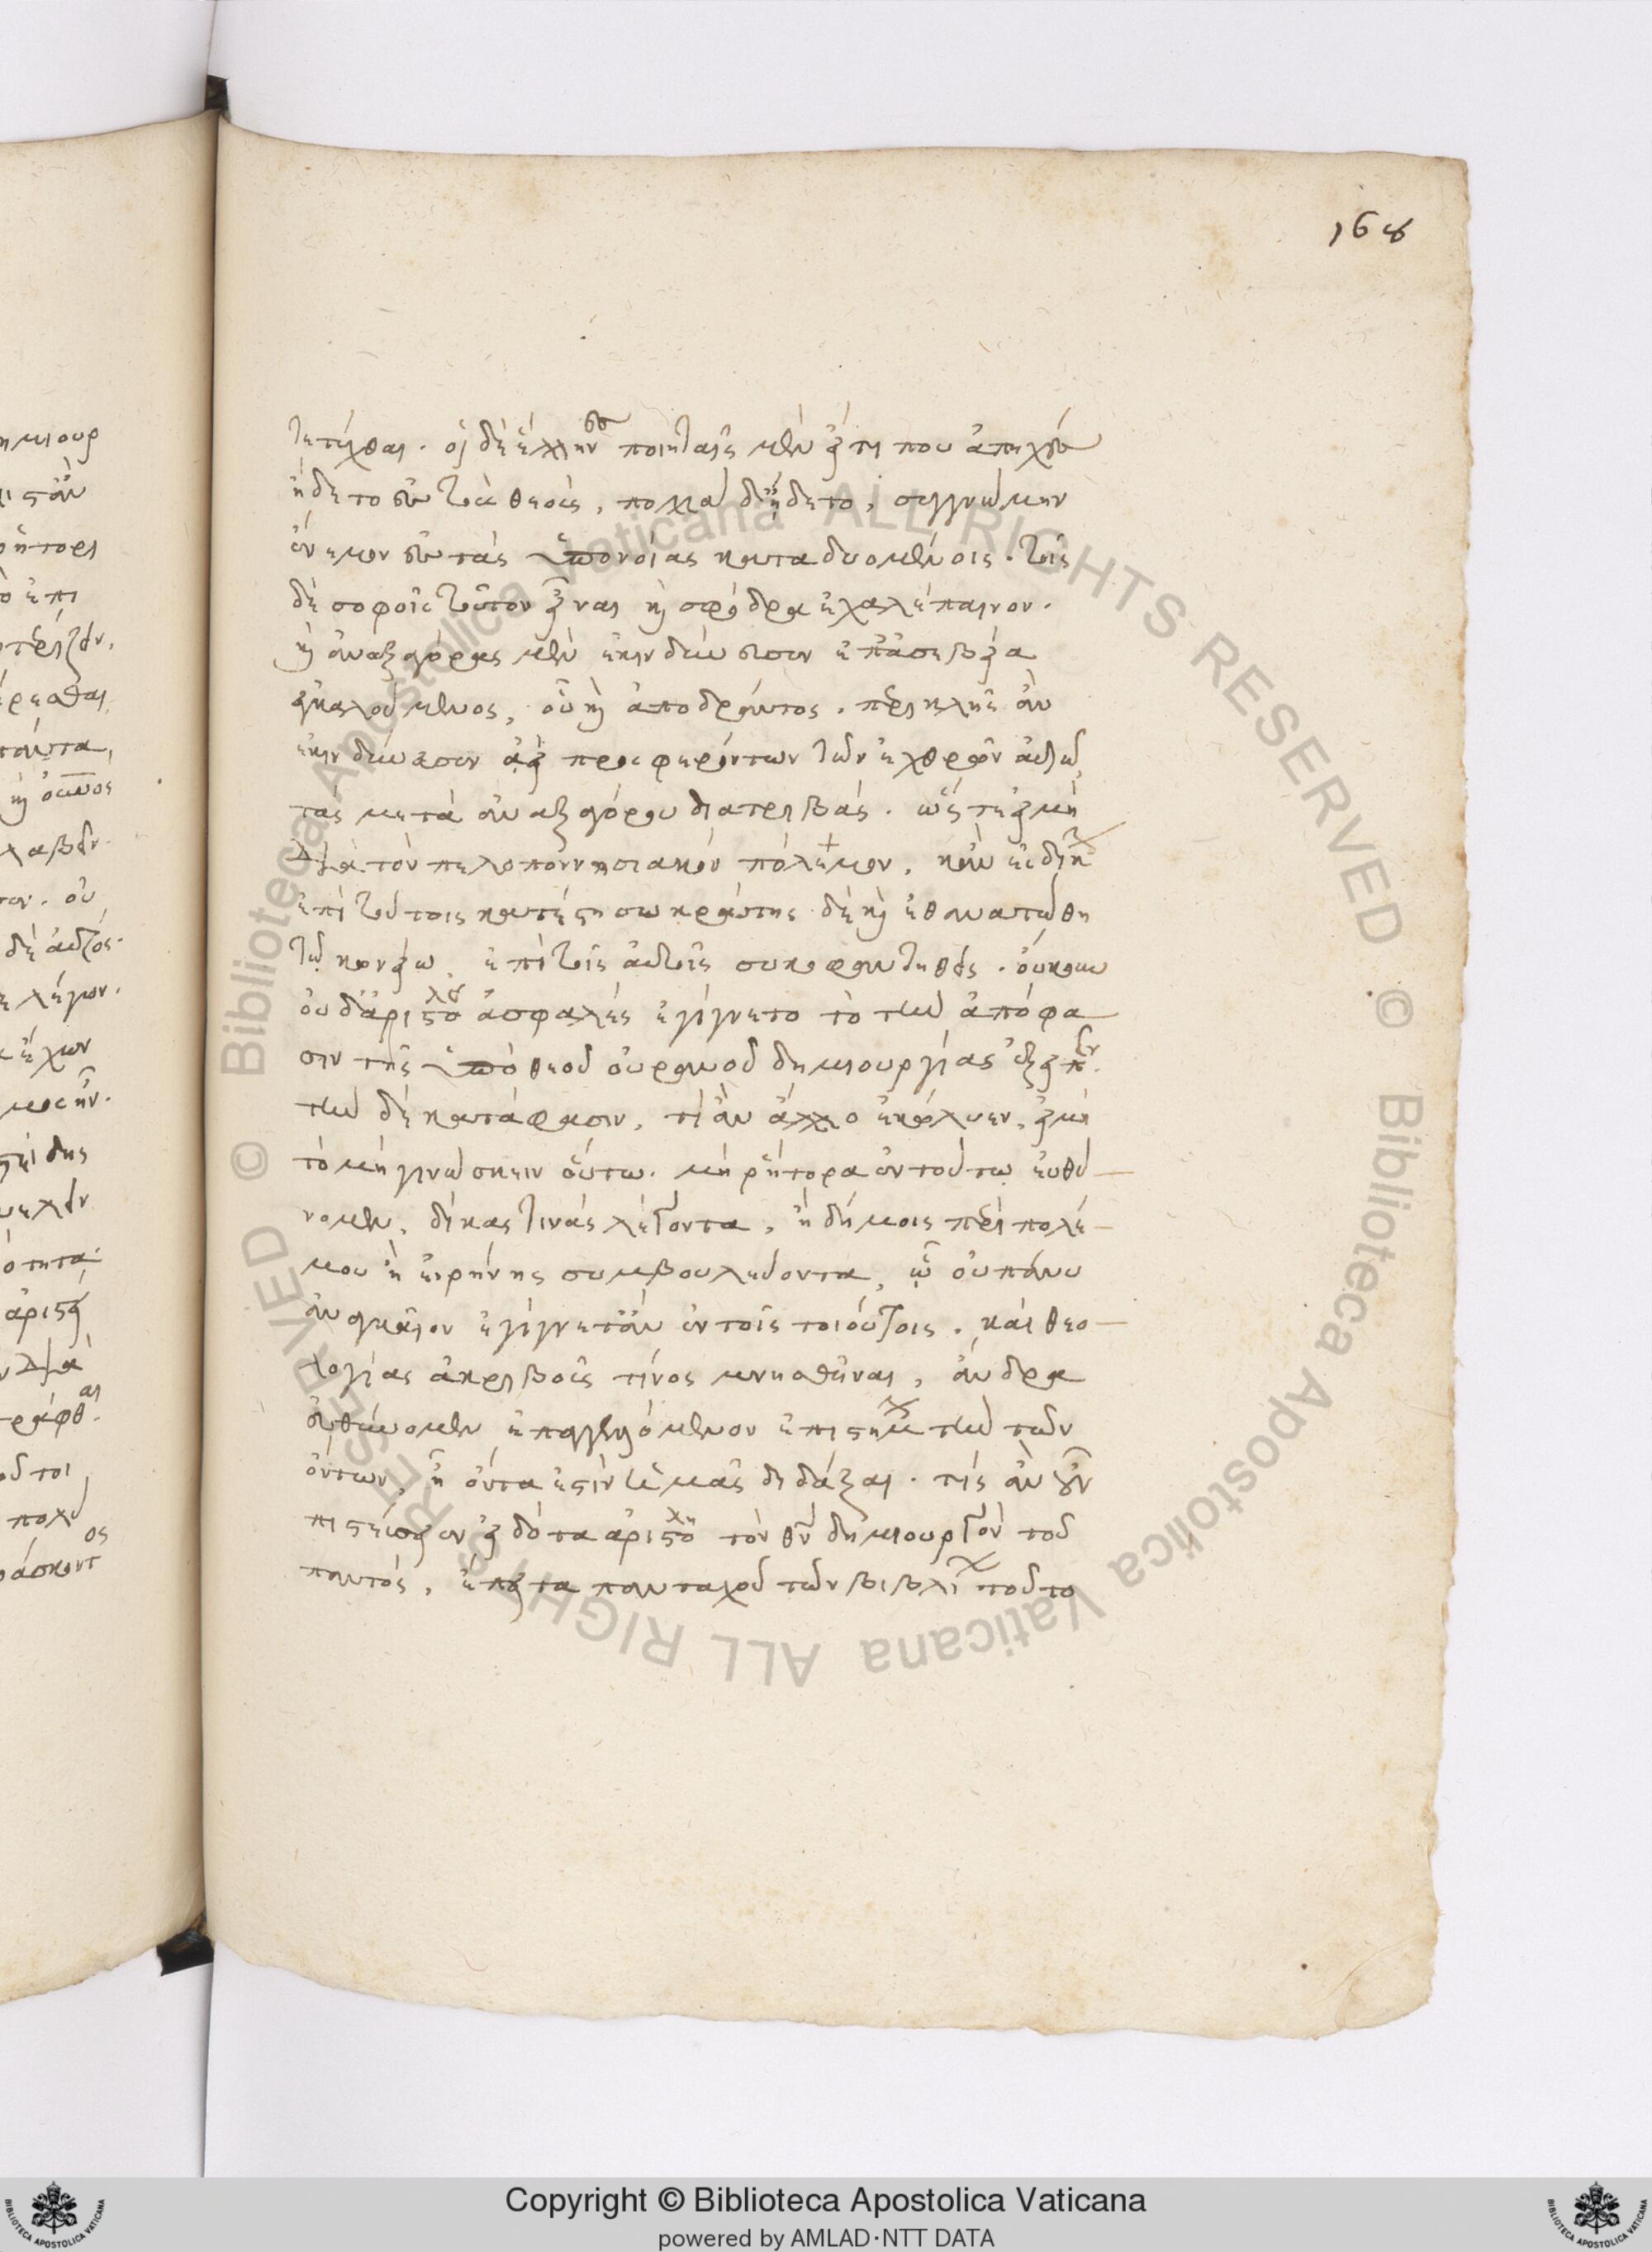 168
τετύχθαι. οἱ δὲ ἕλληνες ποιηταῖς μὲν εἴ τι που ἀπηχὲς
ᾔδετο εἰς τοὺς θεοὺς, πολλὰ δ᾽ ᾔδετο, συγγνώμην
ἔνεμον εἰς τὰς ὑπονοίας καταδυομένοις. τοῖς
δὲ σοφοῖς τοὐτον εἶναι καὶ σφόδρα ἐχαλέπαινον.
καὶ ἀναξαγόρας μὲν ἐκινδύνευσεν ἐπ᾽ ἀσεβείᾳ
ἐγκαλούμενος, οὗ καὶ ἀποδράντος. περικλῆς ἂν
ἐκινδύνευσεν ἀεὶ προφερόντων τῶν ἐχθρῶν αὐτῷ
τὰς μετὰ ἀναξαγόρου διατριβάς. ὥςτε εἰ μὴ
διὰ τὸν πελοποννησιακὸν πόλεμον, κἂν εἰς δίκην
ἐπὶ τούτοις κατέστη σωκράτης δὲ καὶ ἐθανατώθη
τῷ κωνείῳ, ἐπὶ τοῖς αὐτοῖς συκοφαντηθείς. οὔκουν
οὐδ᾽ ἀριστοτέλει ἀσφαλὲς ἐγίγνετο τὸ τὴν ἀπόφα
σιν τῆς ὑπὸ θεοῦ οὐρανοῦ δημιουργίας ἐξειπεῖν.
τὴν δὲ κατάφασιν, τί ἂν ἄλλο ἐκώλυεν, εἰ μὴ
τὸ μὴ γινώσκειν οὕτω. μὴ ῥήτορα ἐν τούτῳ εὐθύ-
νομεν, δίκας τινὰς λέγοντα, ἢ δήμοις περὶ πολέ-
μου ἢ εἰρήνης συμβουλεύοντα, ᾧ οὐ πάνυ
ἀναγκαῖον ἐγίγνετ᾽ ἂν ἐν τοῖς τοιούτοις. καὶ θεο-
λογίας ἀκριβοῦς τινος μνησθῆναι, ἄνδρα
εὐθύνομεν ἐπαγγελλόμενον ἐπιστήμην τὴν τῶν
ὄντων, ᾗ ὄντα ἐστὶν ἡμᾶς διδάξαι. τίς ἂν οὖν
πιστεύσειεν εἰδότα ἀριστοτέλη τὸν θεὸν δημιουργὸν τοῦ
παντός, ἔπειτα πανταχοῦ τῶν βιβλίων τοῦτο
Copyright © Biblioteca Apostolica Vaticana
powered by AMLAD·NTT DATA